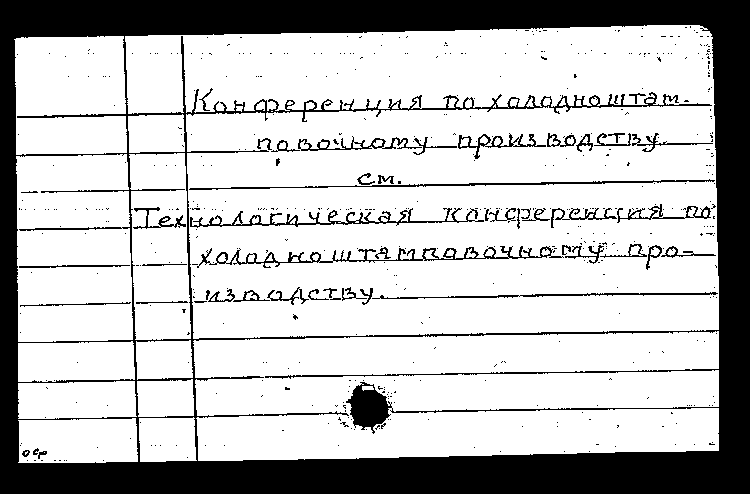 Конференция по холодноштам-
повочному производству
см.
Технологическая конференция по
холодноштамповочному про-
изводству.